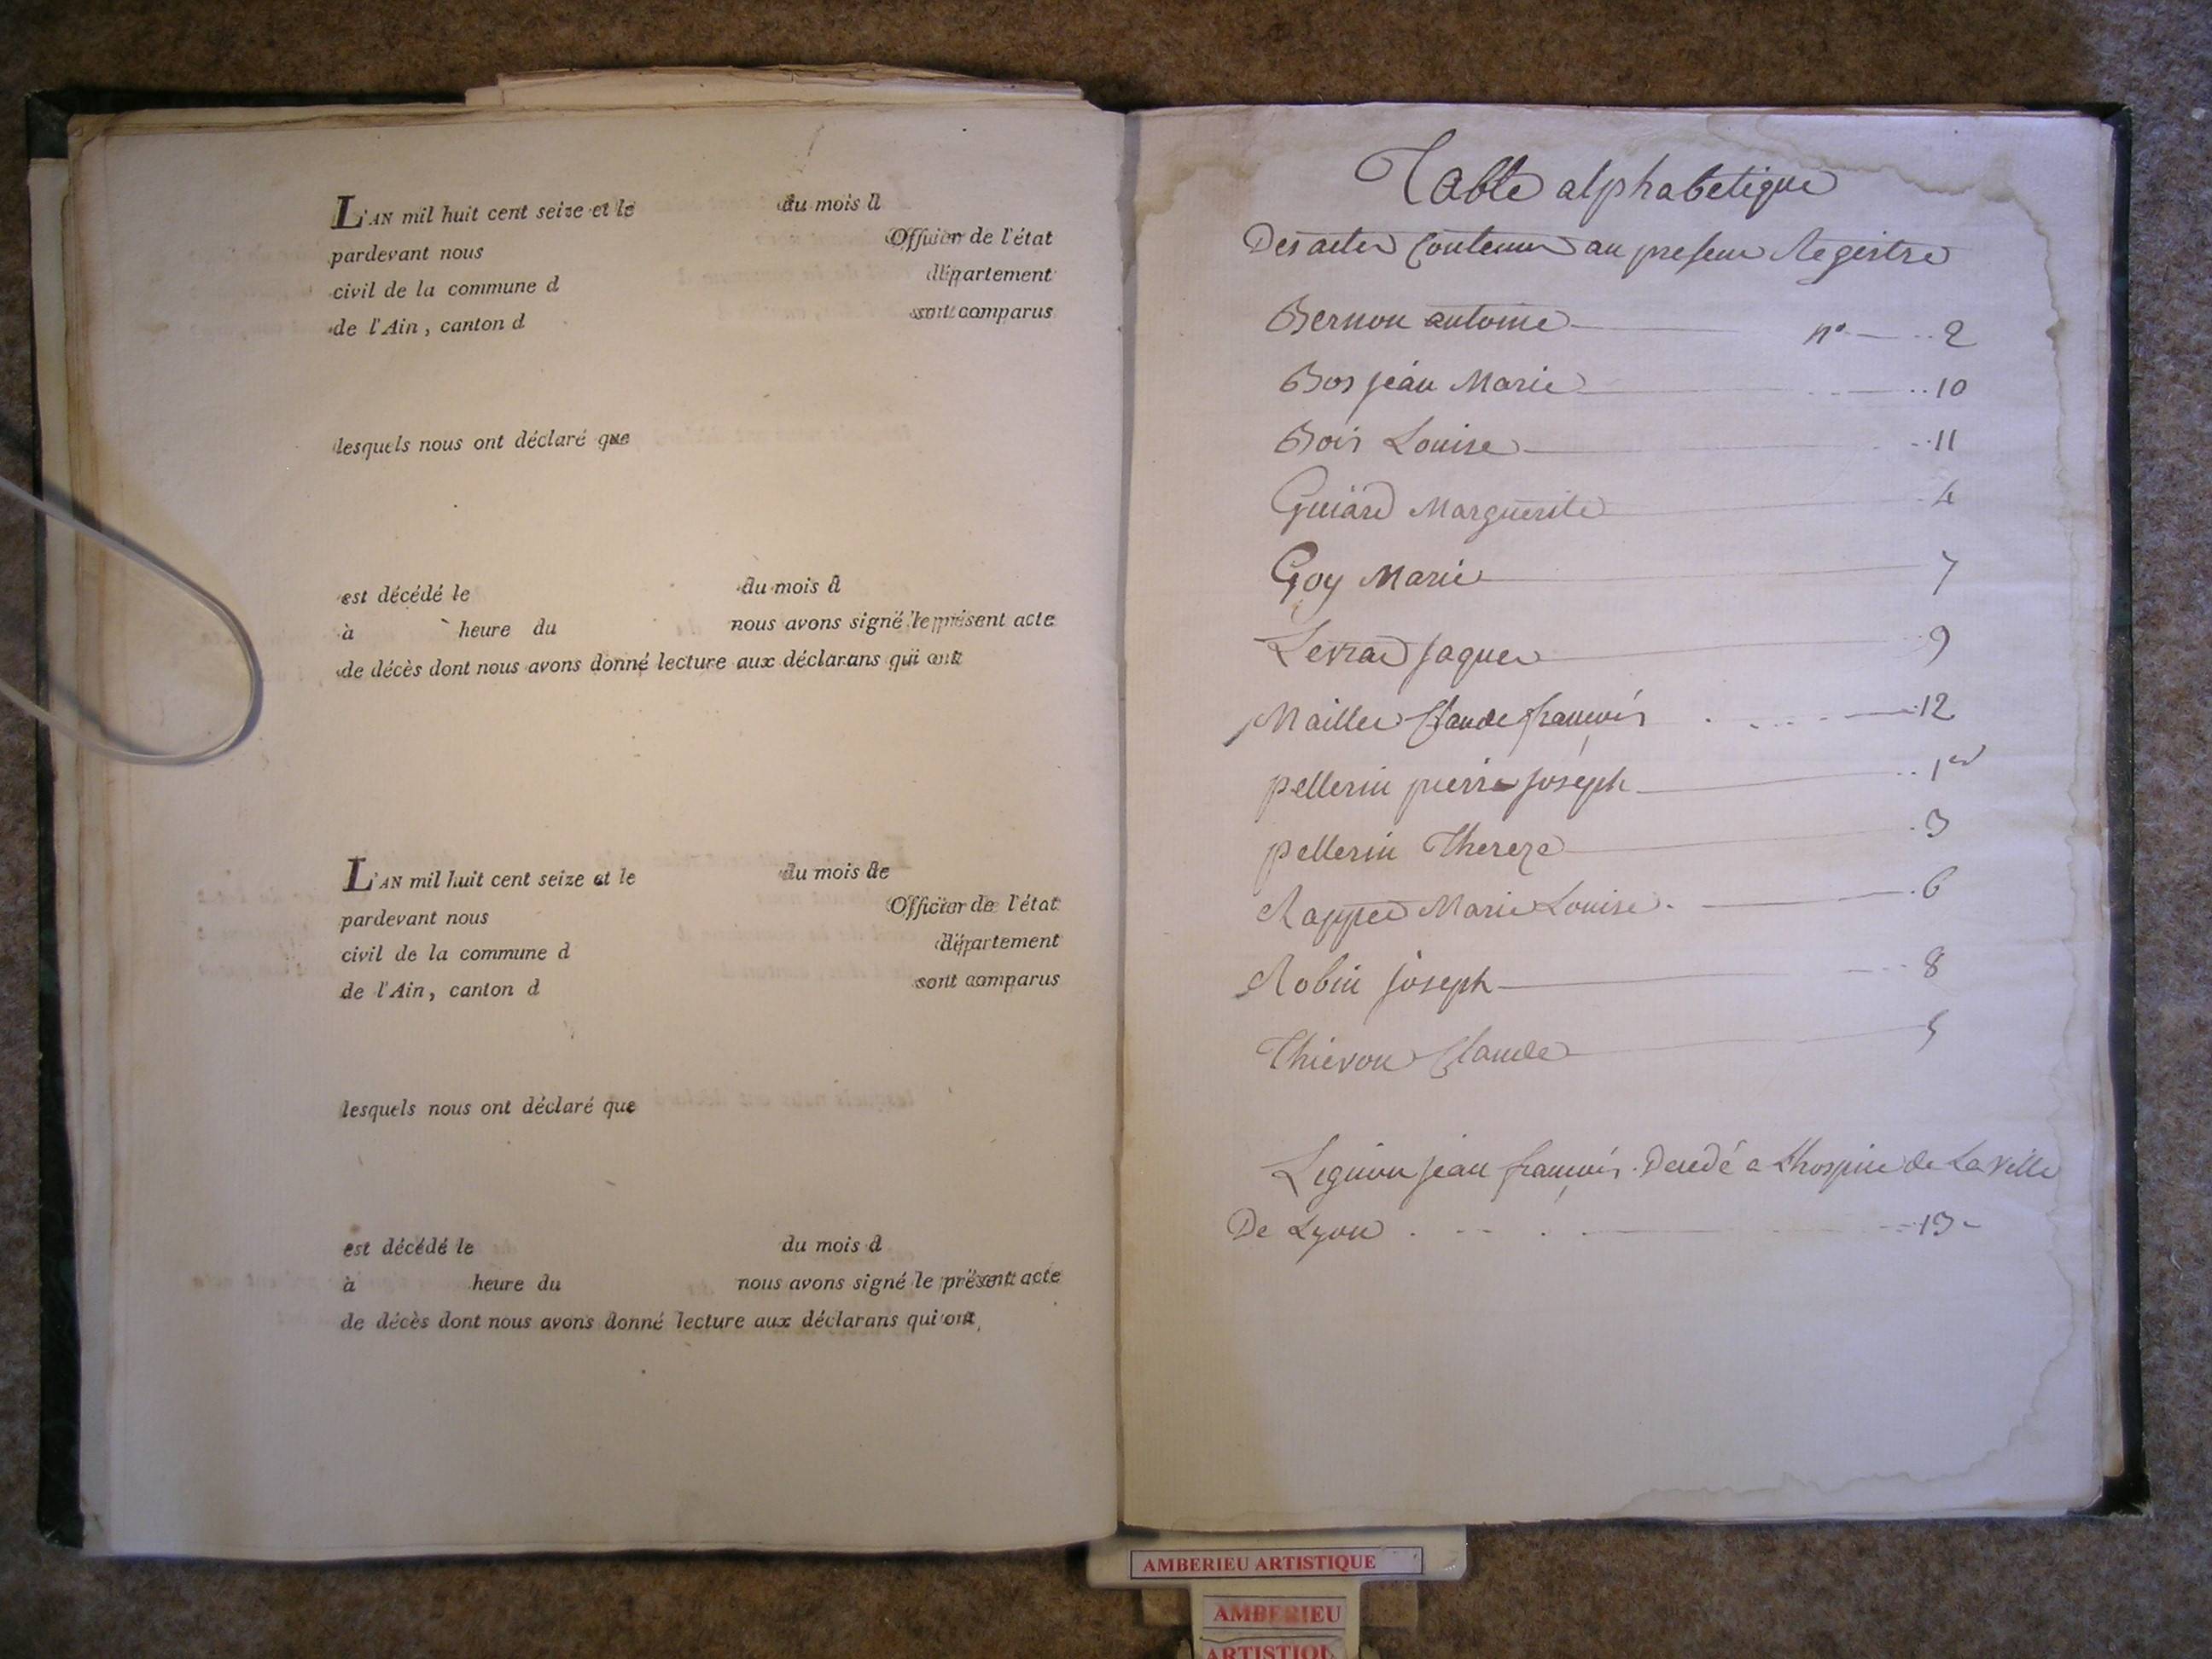 L'AN mil huit cent seize et le du mois d
pardevant nous Officier de l'état
civil de la commune d département
de l'Ain, canton d sont comparus
lesquels nous ont déclaré que
est décédé le du mois d
à heure du nous avons signé le présent acte
de décès dont nous avons donné lecture aux déclarans qui ont
L'AN mil huit cent seize et le du mois de
pardevant nous Officier de l'état
civil de la commune d département
de l'Ain, canton d sont comparus
lesquels nous ont déclaré que
est décédé le du mois d
à heure du nous avons signé le présent acte
de décès dont nous avons donné lecture aux déclarans qui ont,
Table alphabetique
Des actes Contenus au present Registre
Bernon antoine n° 2
Bos jean Marie 10
Bois Louise 11
Guiard Marguerite 4
Goy Marie 7
Levrad jaques 9
Maillet Claude françois 12
pellerin pierre joseph 1er
pellerin Thereze 3
Rappet Marie Louise 6
Robin joseph 8
Thievon Claude 5
Leguion jean françois Decedé a Lhospice de La ville
De Lyon 13
AMBERIEU ARTISTIQUE
AMBERIEU
ARTISTIQU